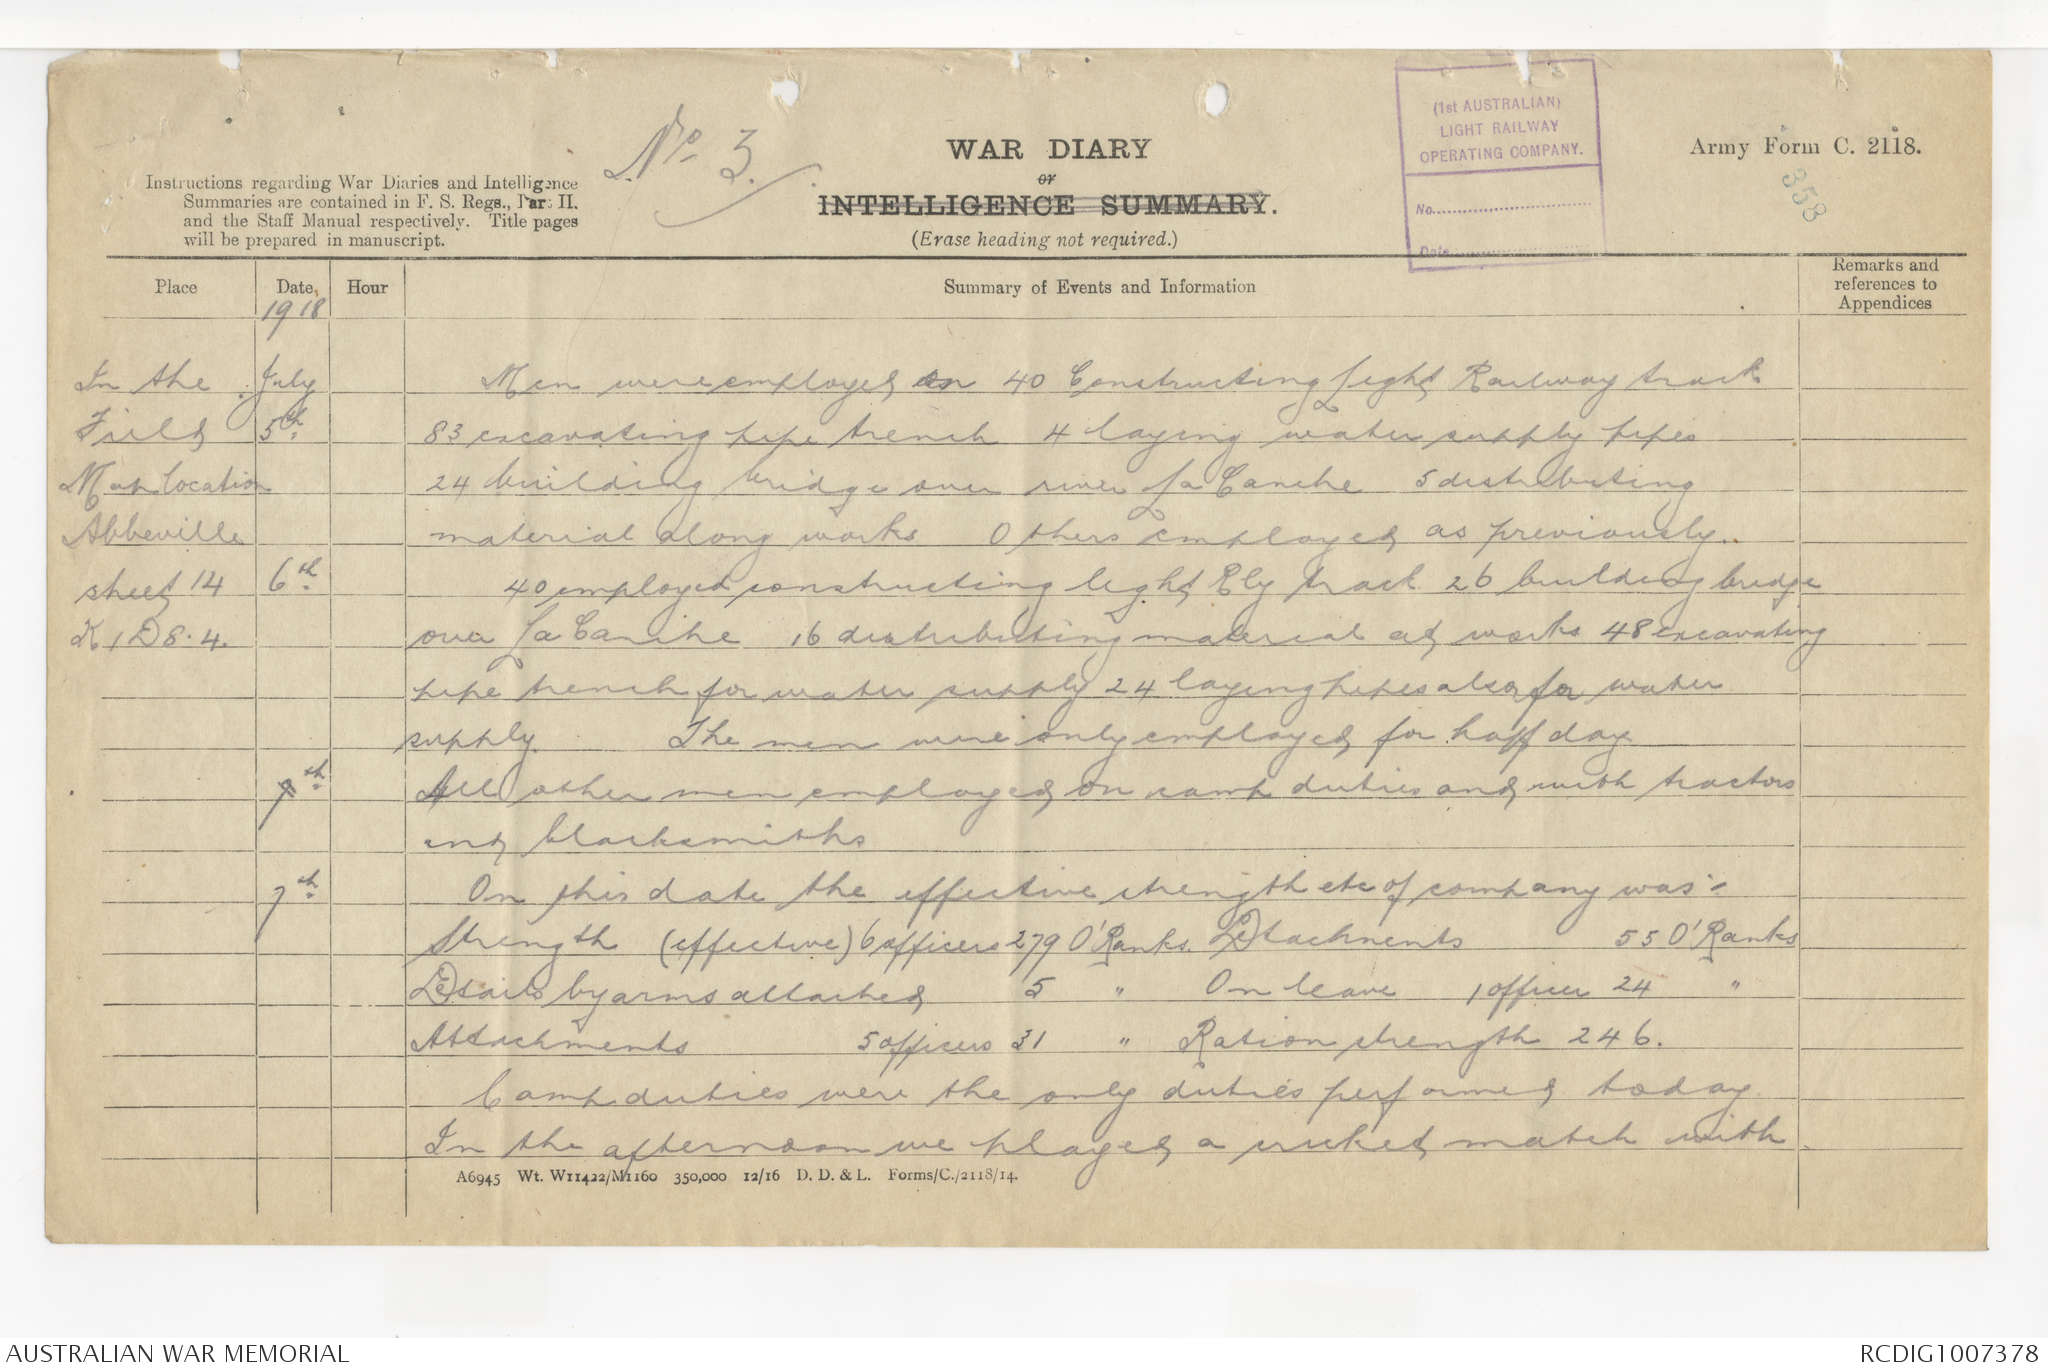 No. 3.
WAR DIARY
or
INTELLIGENCE SUMMARY.
(Erase heading not required.)
Instructions regarding War Diaries and Intelligence
Summaries are contained in F. S. Regs., Part II.
and the Staff Manual respectively. Title pages
will be prepared in manuscript.
(1st AUSTRALIAN)
LIGHT RAILWAY
OPERATING COMPANY.
No.
Date
Army Form C. 2118.
358
Place
Date
Hour
Summary of Events and Information
Remarks and
references to
Appendices
1918
In the July Men were employed 40 Constructing Light Railway track
Field 5th. 83 excavating pipe trench 4 laying water supply pipes
Map location 24 building bridge over river La Canche 5 distributing
Abbeville material along works Others employed as previously..
sheet 14 6th. 40 employed constructing light Rly track 26 building bridge
K 1 D 8.4. over La Canche 16 distributing material at works 48 excavating
pipe trench for water supply 24 laying pipes also for water
supply. The men were only employed for half day
7th. All other men employed on camp duties and with tractors
and blacksmiths
7th. On this date the effective strength etc of company was:-
Strength (effective) 6 officers 279 O'Ranks. Detachments 55 O'Ranks
Details by arms attached 5 " On leave 1 officer 24 "
Attachments 5 officers 31 " Ration strength 246.
Camp duties were the only duties performed today
In the afternoon we played a cricket match with
A6945 Wt. W11422/M1160 350,000 12/16 D. D. & L. Forms/C./2118/14.
AUSTRALIAN WAR MEMORIAL
RCDIG1007378